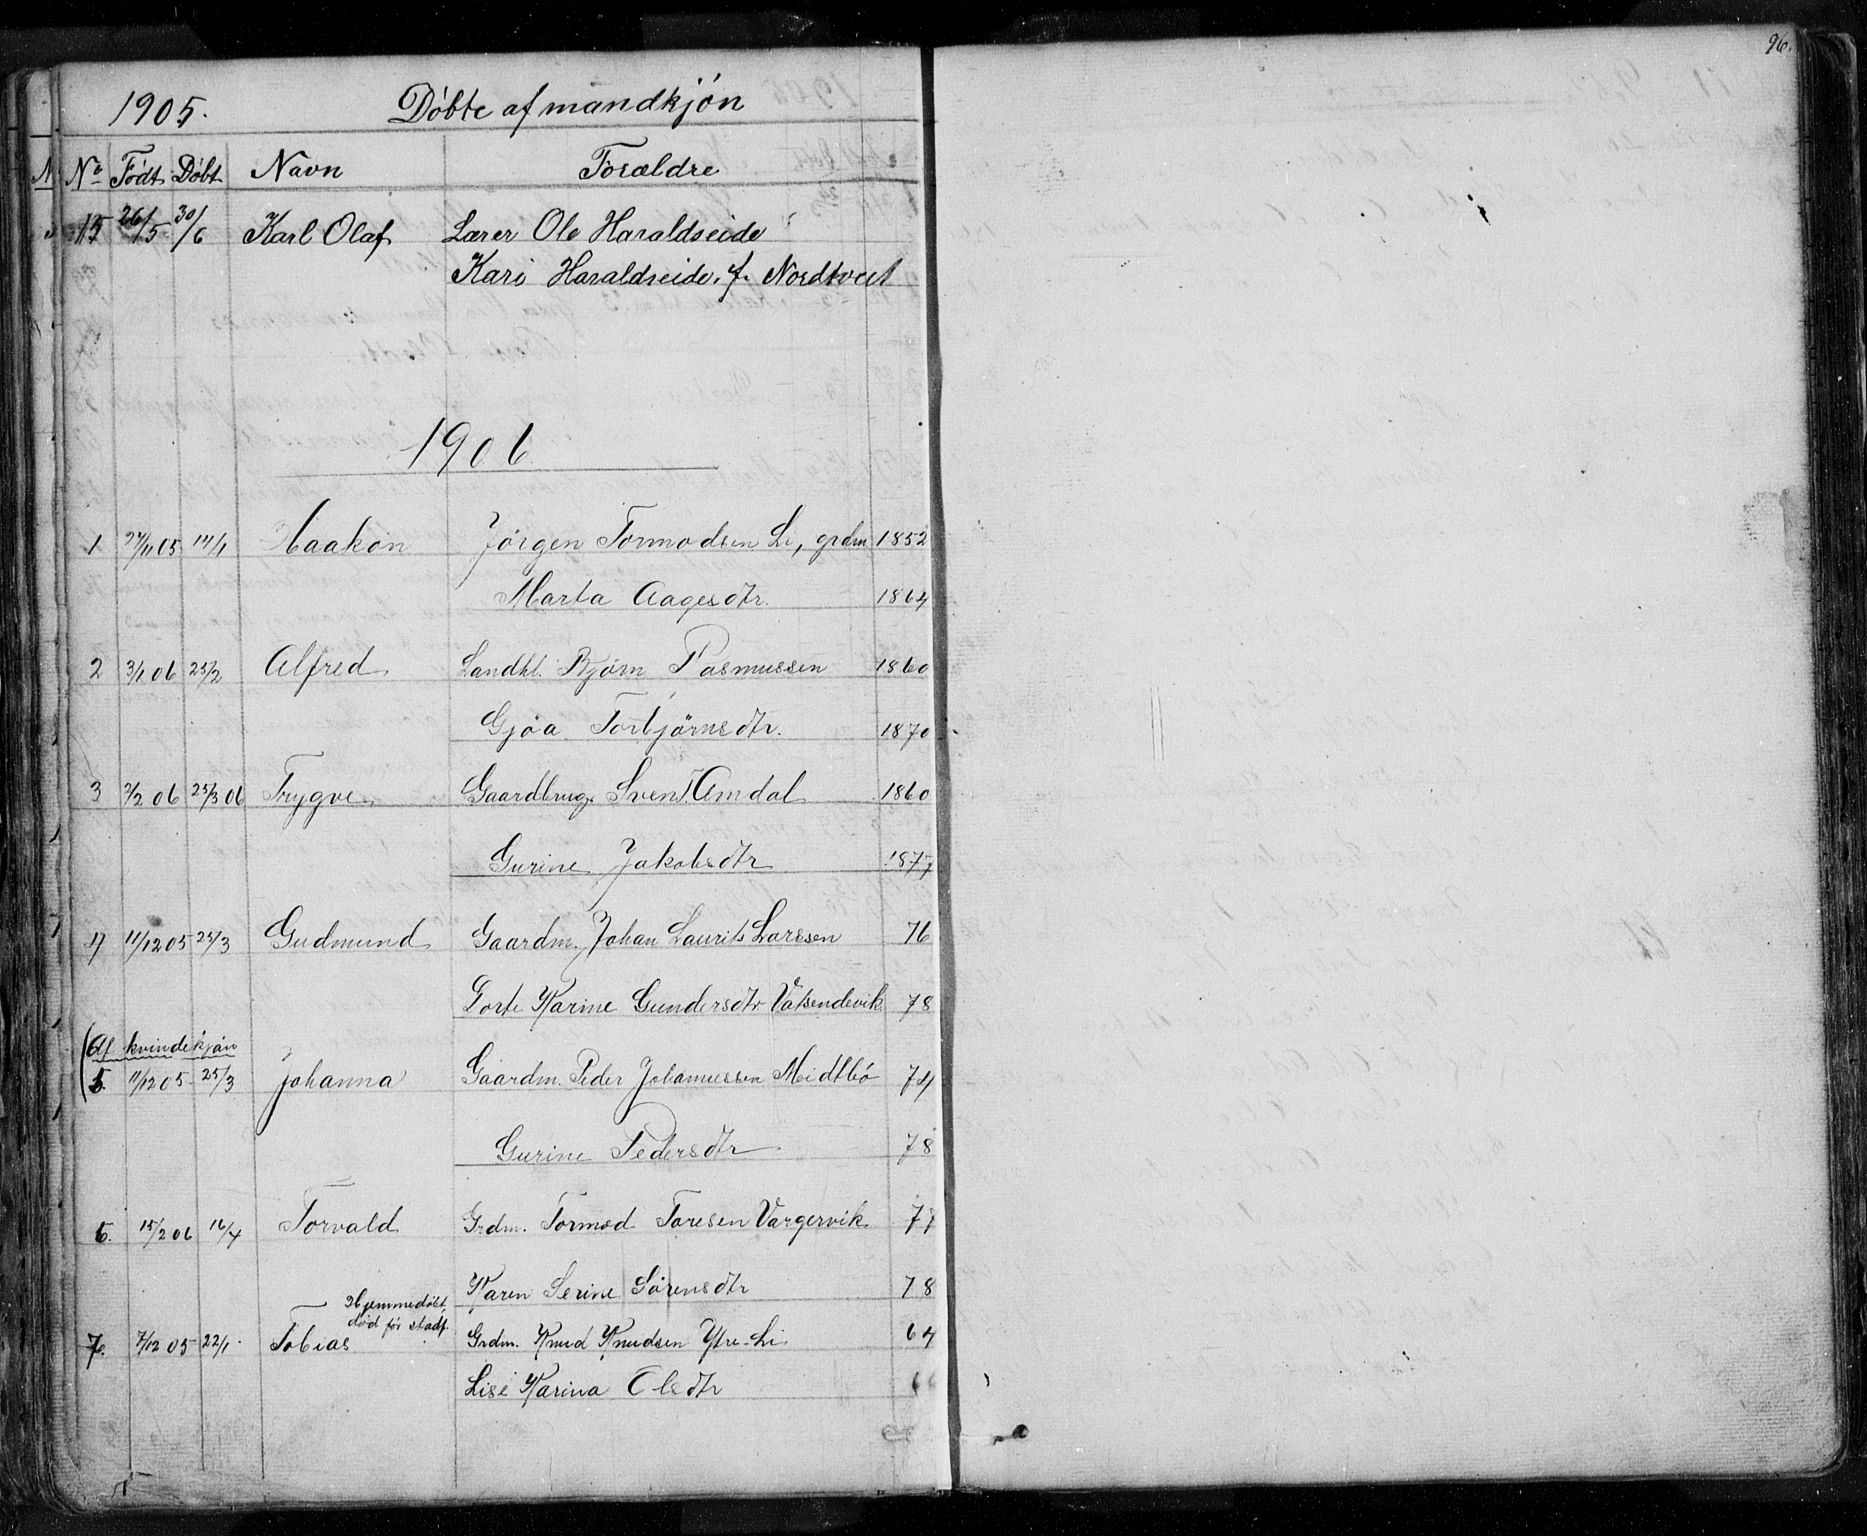 96.
1905. Döbte af mandkjön
No Födt Döbt Navn Forældre
15 26/5 30/6 Karl Olaf Lærer Ole Haraldseide
Kari Haraldseide. f. Nordtveit
1906
1 27/11 05 14/1 Haakon Jörgen Tormodsen Li, grdm 1852
Marta Aagesdtr. 1864
2 3/1 06 25/2 Alfred Landhl. Bjørn Rasmussen 1860
Gjöa Torbjörnsdtr. 1870
3 2/2 06 25/3 06 Trygve Gaardbrug. Sven T. Amdal 1860
Gurine Jakobsdtr 1877
4 11/12 05 25/3 Gudmund Gaardm. Johan Laurits Larssen 76
Dorte Karine Gundersdtr Vatsendevik 78
(Af kvindekjön
5. 11/12 05 25/3 Johanna Gaardm. Peder Johannessen Midtbö 74
Gurine Pedersdtr 78
6. 15/2 06 16/4 Torvald Grdm. Tormod Toresen Vargervik 77
Karen Serine Sörensdtr 78
Hjemmedöbt,
död för stadf.
7. 7/12 05 22/1 Tobias Grdm. Knud Knudsen Ytre-Li 64
Lise Karina Olsdtr